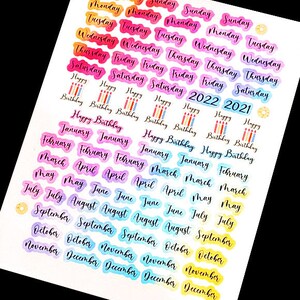 Sunday Sunday Sunday
Monday Monday Monday Monday Tuesday
Tuesday Tuesday Tuesday Tuesday Wednesday
Wednesday Wednesday Wednesday Wednesday Thursday
Thursday Thursday Thursday Thursday
Saturday Friday Friday Friday Friday Saturday
Saturday Saturday Saturday 2022 2021
Happy Birthday Happy Birthday Happy Birthday Happy Birthday Happy Birthday Happy Birthday
Happy Birthday Happy Birthday Happy Birthday
January January January January January
February February February February February
March March March March March
April April April April
May May May May May
June June June June
July July July July July
August August August August
September September September September September
October October October October October
November November November November November
December December December December